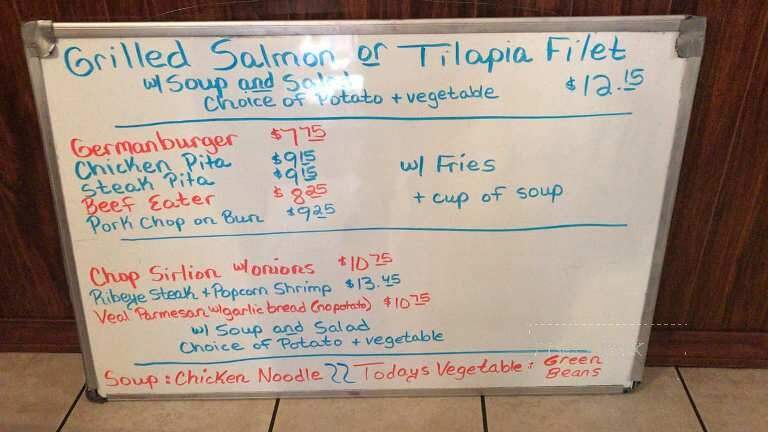 Grilled Salmon or Tilapia Filet
w/ Soup and Salad $12.15
Choice of Potato + vegetable
Germanburger $7.75
Chicken Pita $9.15
Steak Pita $9.15
w/ Fries
Beef Eater $8.25
+ cup of soup
Pork Chop on Bun $9.25
Chop Sirlion w/onions $10.75
Ribeye Steak + Popcorn Shrimp $13.45
Veal Parmesan w/garlic bread (no potato) $10.75
w/ Soup and Salad
Choice of Potato + vegetable
Soup: Chicken Noodle Todays Vegetable: Green Beans